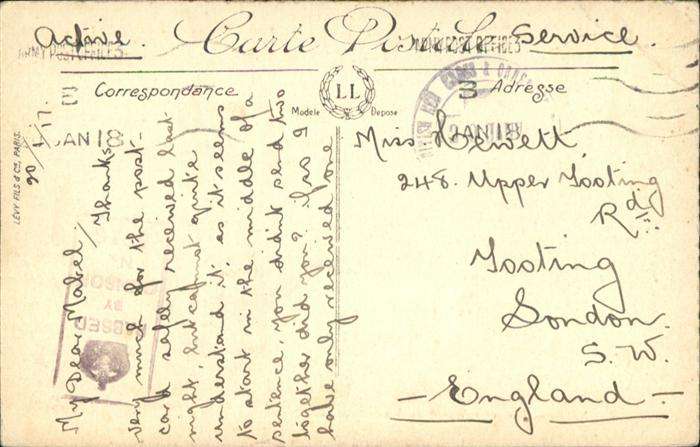 Active. Carte Postale Service.
ARMY POST OFFICES
ARMY POST OFFICES
Correspondance
LL
Modèle Déposé
Adresse
JAN 18
JAN 18
LÉVY FILS & Cie, PARIS.
20/1/17.
My Dear Mabel/ Thanks
very much for the post-
card safely received last
night, but cannot quite
understand it as it seems
to start in the middle of a
sentence, you didn't send two
together did you? if so I
have only received one
PASSED
BY
CENSOR
Miss Hewett
248. Upper Tooting
Rd.
Tooting
London.
S. W.
- England -